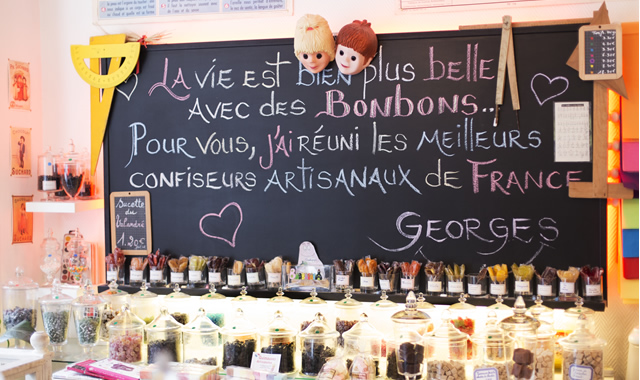 La vie est bien plus belle
avec des Bonbons..
Pour vous, j'ai réuni les meilleurs
confiseurs artisanaux de France
Georges
Sucette
du
1.20€